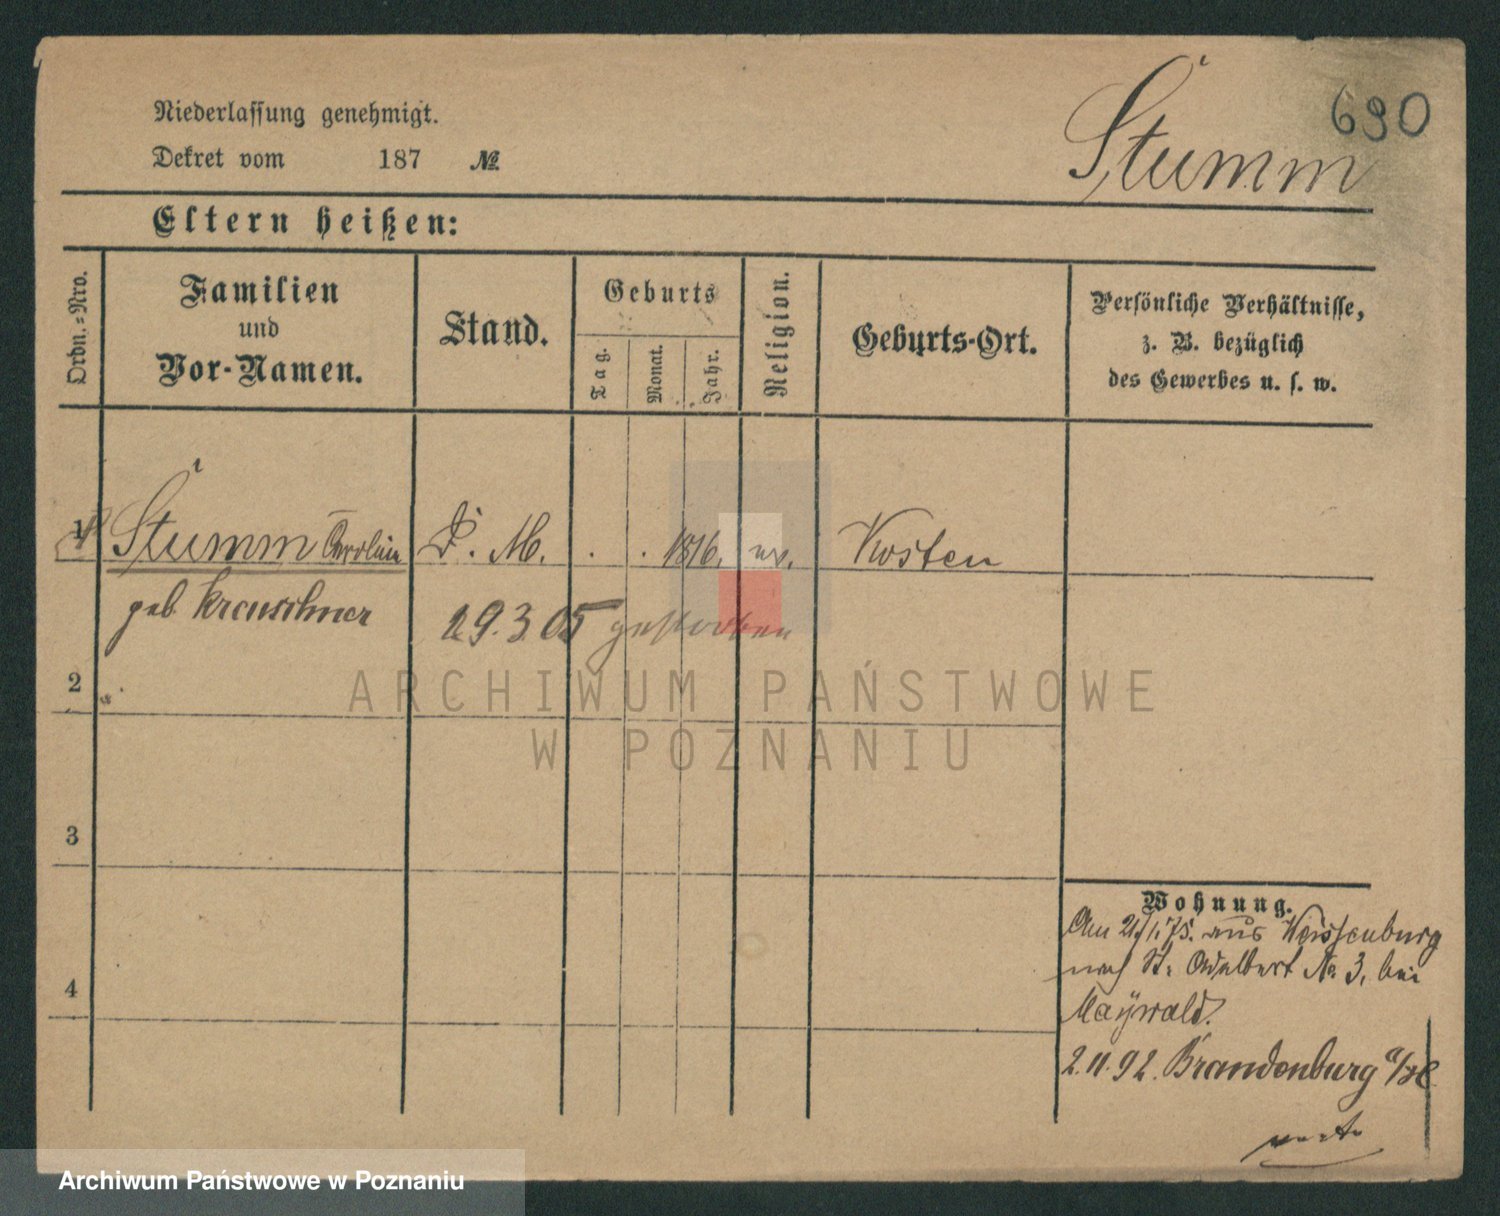 690
Stumm
Niederlassung genehmigt.
Dekret vom 187 №
Eltern heißen:
Ordn.-Nro.
Familien
und
Vor-Namen.
Stand.
Geburts
Tag.
Monat.
Jahr.
Religion.
Geburts-Ort.
Persönliche Verhältnisse,
z. B. bezüglich
des Gewerbes u. s. w.
1 Stumm Carolin . . 1816. Kosten
geb Kreuschner 29.3.05 gestorben
2
3
4
Wohnung.
Am 21/1.75. aus Weissenburg
nach St. Adalbert No 3, bei
Maÿwald.
2.11.92. Brandenburg a/H
ARCHIWUM PAŃSTWOWE
W POZNANIU
Archiwum Państwowe w Poznaniu